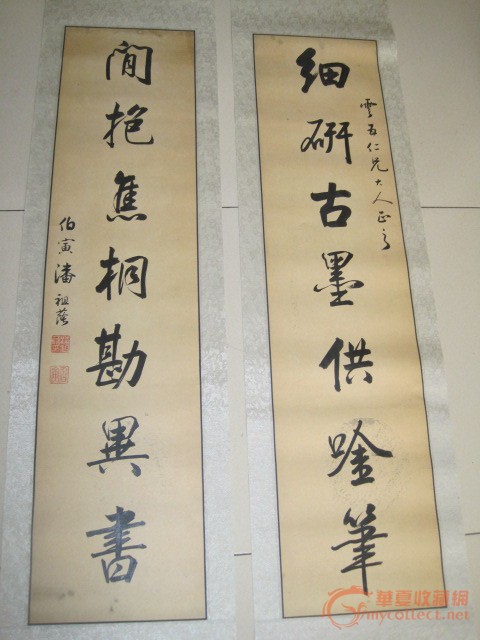 細研古墨供唫筆
雲仁兄大人正之
閒抱焦桐勘異書
伯寅潘祖蔭
華夏收藏網
mycollect.net